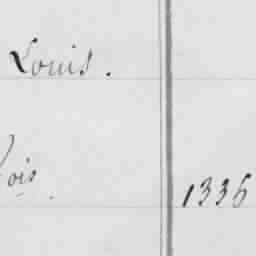 Louis.
ois. 1336